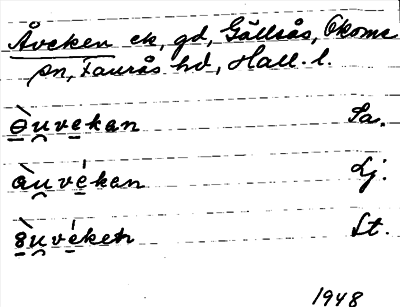 Åvcken ek, gd, Gällsås, Okome
sn, Faurås hd, Hall. l.
ə̀u̯vekan Sa.
àu̯vékan Lj.
u̯véken St.
1948